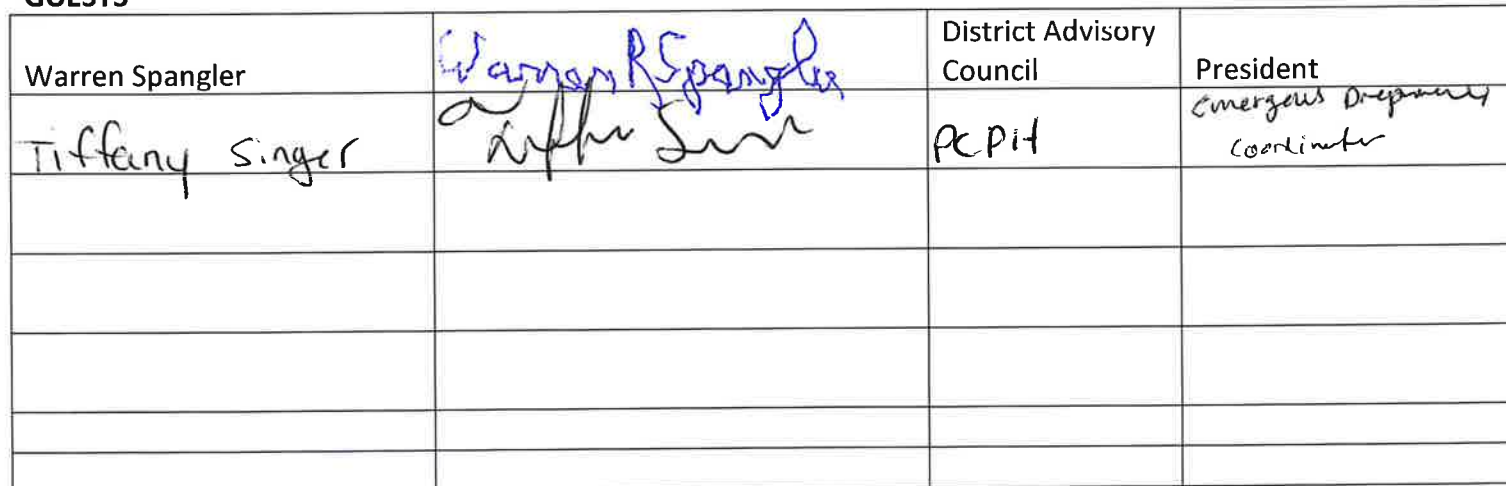 GUESTS
Warren Spangler
Warren R Spangler
District Advisory
Council
President
Tiffany Singer
PCPH
Emergency Preparedness
Coordinator